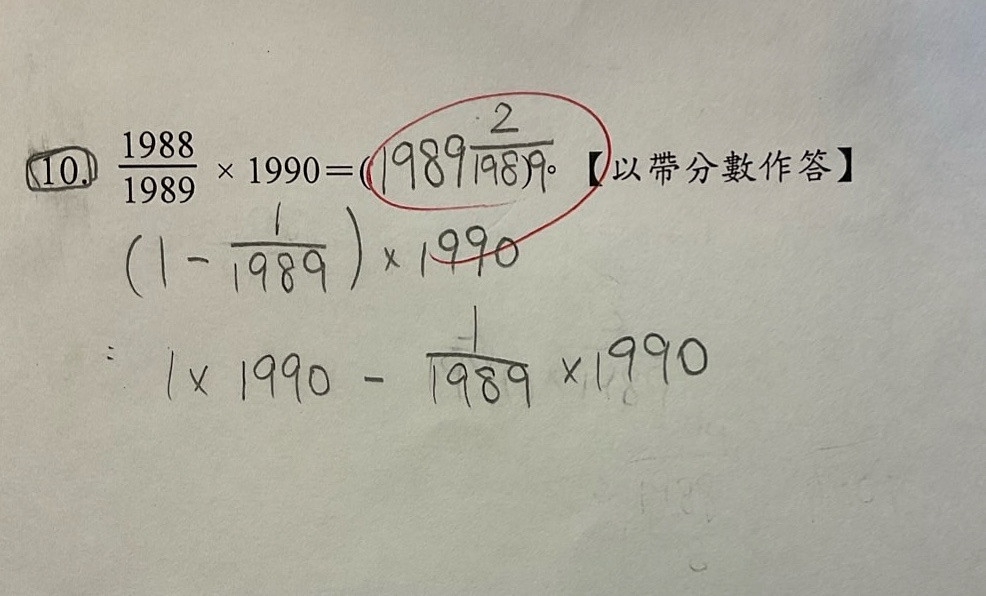 10. 1988/1989 × 1990=(1989 2/1989)。【以帶分數作答】
(1 - 1/1989) × 1990
: 1 × 1990 - 1/1989 × 1990